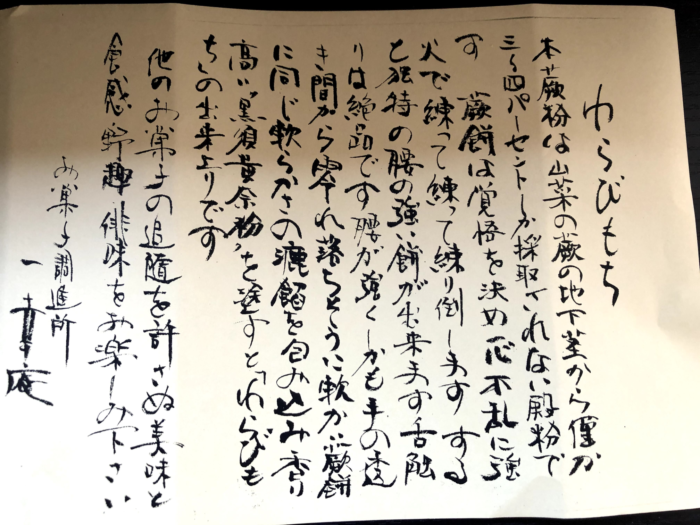 わらびもち
本蕨粉は山菜の蕨の地下茎から僅か
三〜四パーセントしか採取されない殿粉で
す 蕨餅は覚悟を決め一心不乱に強
火で練って練って練り倒します する
と独特の腰の強い餅が出来ます 舌触
りは絶品です 腰が強くしかも手の透
き間から零れ落ちそうに軟かい蕨餅
に同じ軟らかさの漉餡を包み込み香り
高い“黒須黄奈粉”を塗すと「わらびも
ち」の出来上りです
他のお菓子の追随を許さぬ美味と
食感 野趣 俳味をお楽しみ下さい
お菓子調進所
一幸庵